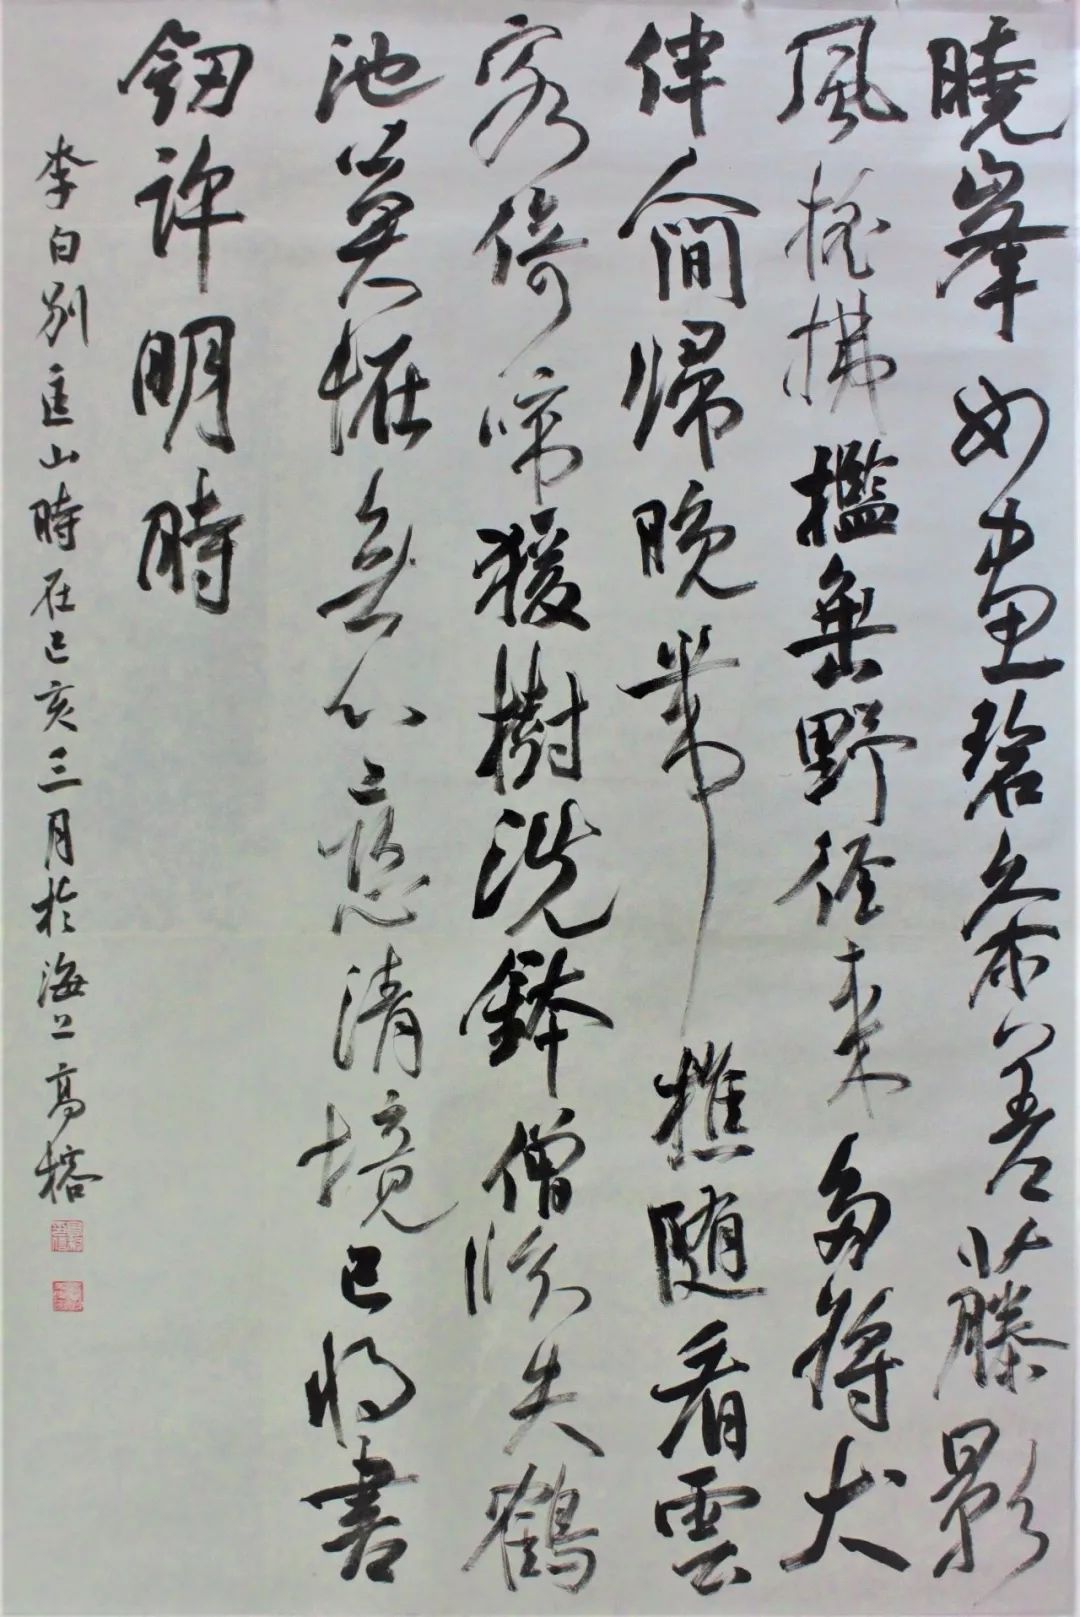 曉峯如畫碧參差藤影
風摇拂檻垂野徑来多將犬
伴人間歸晚帶樵随看雲
客倚啼猨樹洗鉢僧臨失鶴
池莫怪無心戀清境已將書
釼許明時
李白別匡山時在己亥三月於海上高榕